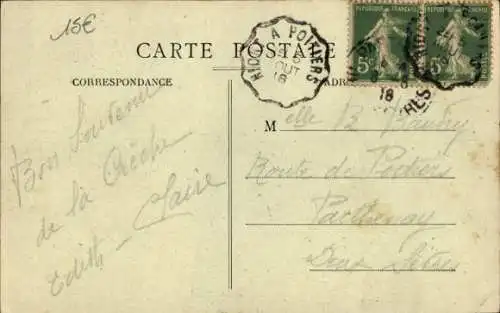 15€
CARTE POSTALE
CORRESPONDANCE
ADR
NIORT A POITIERS
OUT
18
REPUBLIQUE FRANÇAISE
REPUBLIQUE FRANÇAISE
5c
5c
18
RES
Bon Souvenir
de la Crèche
Edith - Claire
Melle B Baudry
Route de Poitiers
Parthenay
Deux Sèvres